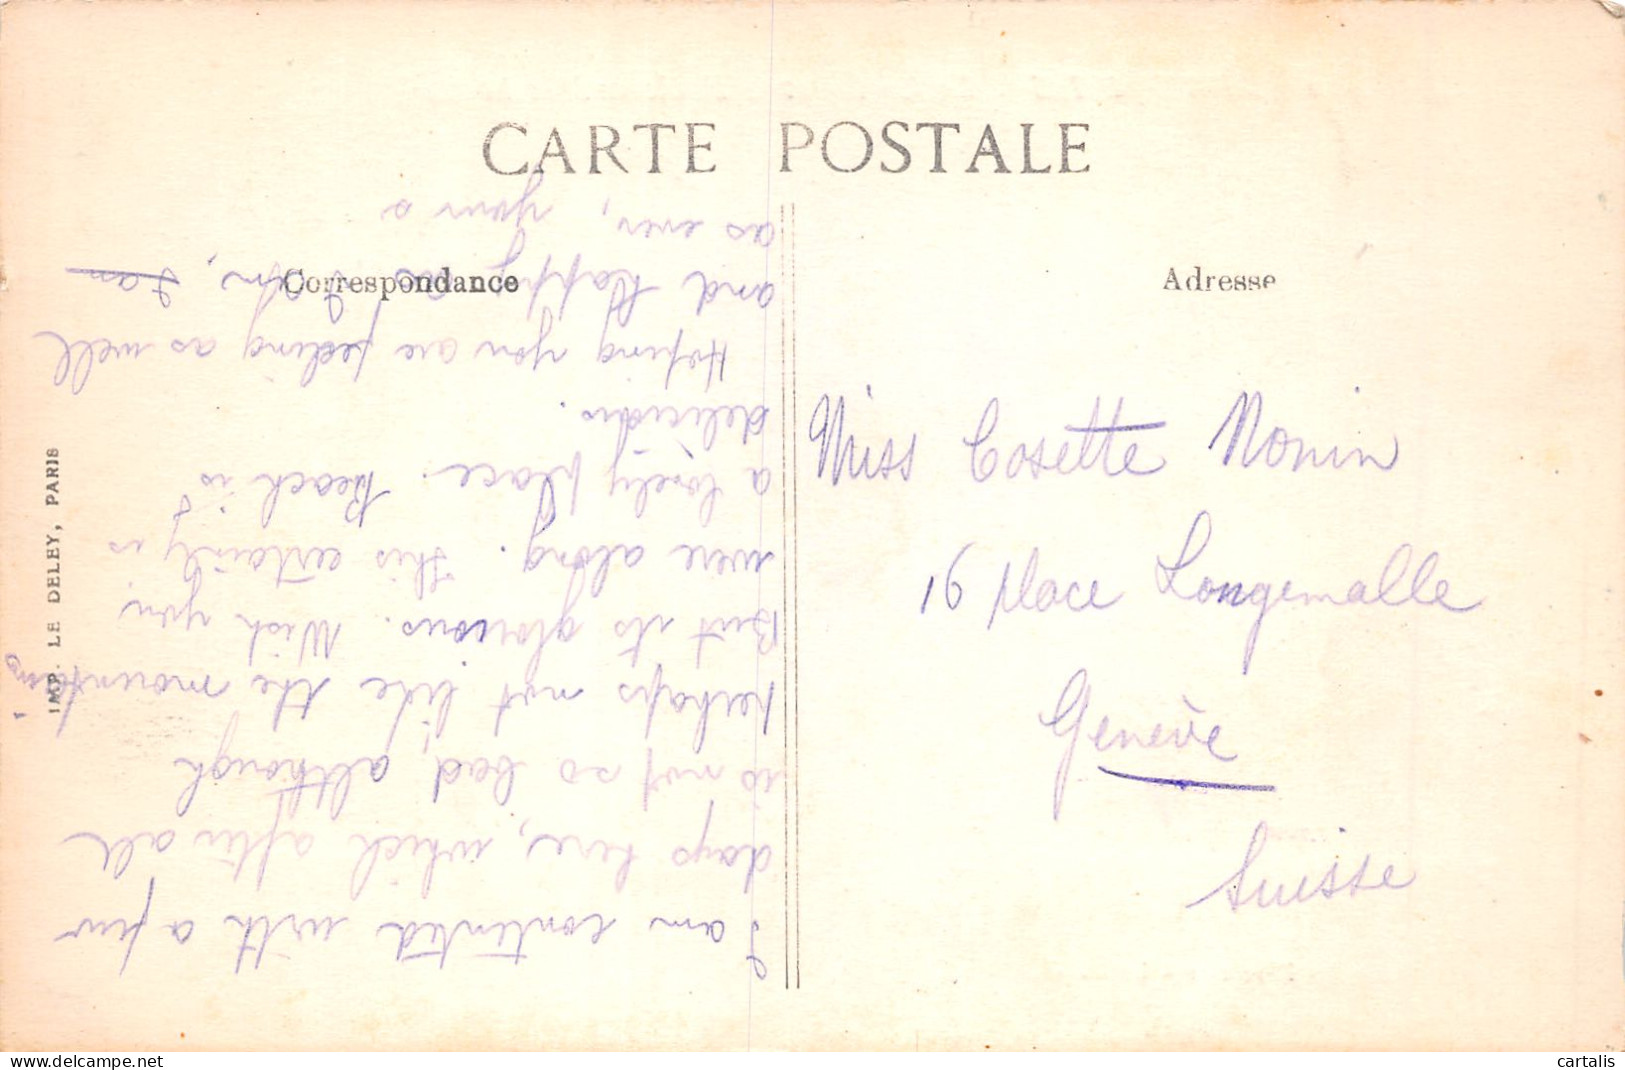 CARTE POSTALE
Correspondance
Adresse
I am contented with a few
days here, which after all
is not so bad, although
perhaps not like the mountains.
But its glorious. Wish you
were along. This certainly is
a lovely place. Beach is
delicious.
Hoping you are feeling as well
and happy as I am,
as ever, yours
Miss Cosette Monin
16 place Longemalle
Genève
Suisse
IMP. LE DELEY, PARIS
www.delcampe.net
cartalis